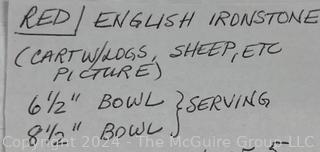 RED / ENGLISH IRONSTONE
(CART W/LOGS, SHEEP, ETC
PICTURE)
6 1/2" BOWL } SERVING
8 1/2" BOWL
Copyright 2024 - The McGuire Group LLC